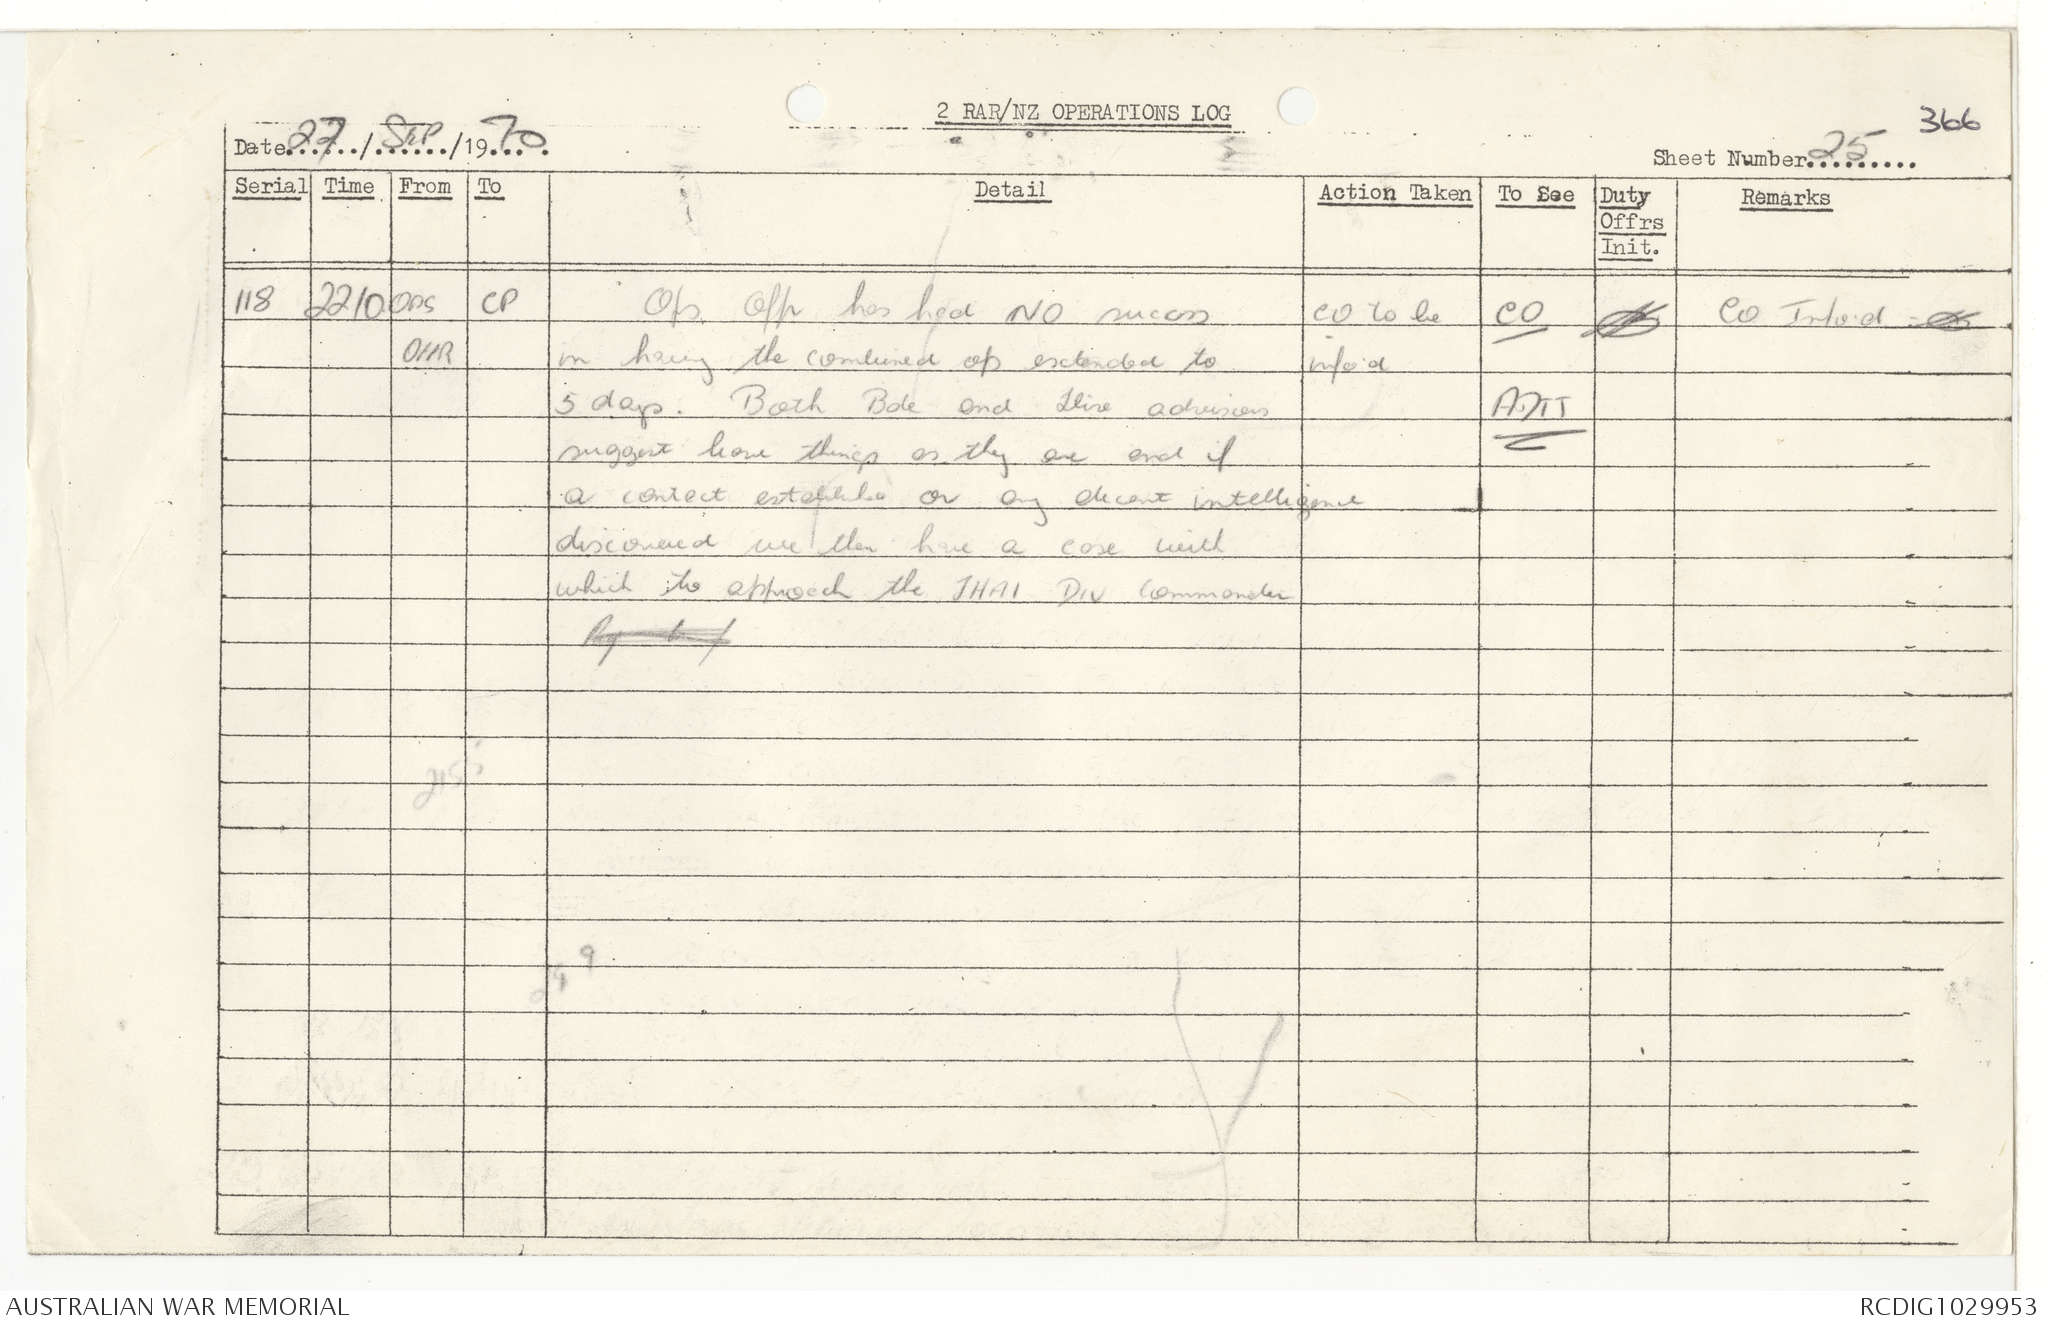 2 RAR/NZ OPERATIONS LOG
366
Date 27/SEP/1970
Sheet Number 25
Serial Time From To Detail Action Taken To See Duty Offrs Init. Remarks
118 2210 OPS CP Ops Offr has had NO success CO to be CO CO Info'd
OFFR in having the combined op extended to info'd
5 days. Both Bde and Divs advisors
suggest leave things as they are and if
a contact established or any decent intelligence
discovered we then have a case with
which to approach the THAI DIV Commander
2155
AUSTRALIAN WAR MEMORIAL
RCDIG1029953